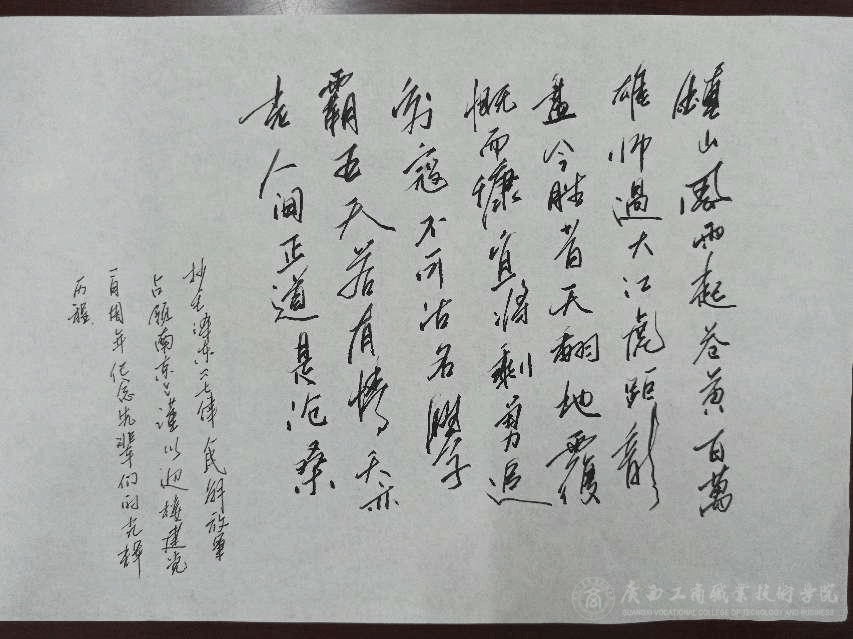 鍾山風雨起苍黄百萬
雄师過大江虎距龍
盘今胜昔天翻地覆
慨而慷宜将剩勇追
穷寇不可沽名學
霸王天若有情天亦
老人间正道是沧桑
抄毛泽东《七律 民解放軍
占领南京》谨以迎接建党
一百周年纪念先辈们的光辉
历程
廣西工商職業技術學院
GUANGXI VOCATIONAL COLLEGE OF TECNOLOGY AND BUSINESS